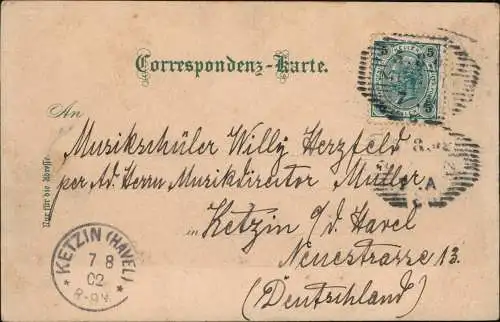 Correspondenz-Karte.
5 5
An
Musikschüler Willy Herzfeld
per Ad. Herrn Musikdirector Müller
in Ketzin o/d. Havel
Neuestrasse 13.
(Deutschland)
Nur für die Adresse.
KETZIN (HAVEL)
7 8
02
8-9N.